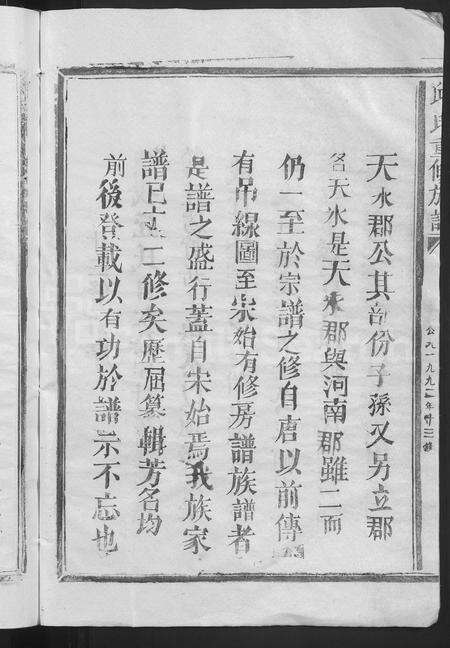 邱氏重修族譜
公元一九九二年十三修
天水郡公其部份子孫又另立郡
名天水是天水郡與河南郡雖二而
仍一至於宗譜之修自唐以前傳
有吊線圖至宋始有修房譜族譜者
是譜之盛行蓋自宋始焉我族家
譜已十二修矣歷屆纂輯芳名均
前後登載以有功於譜示不忘也